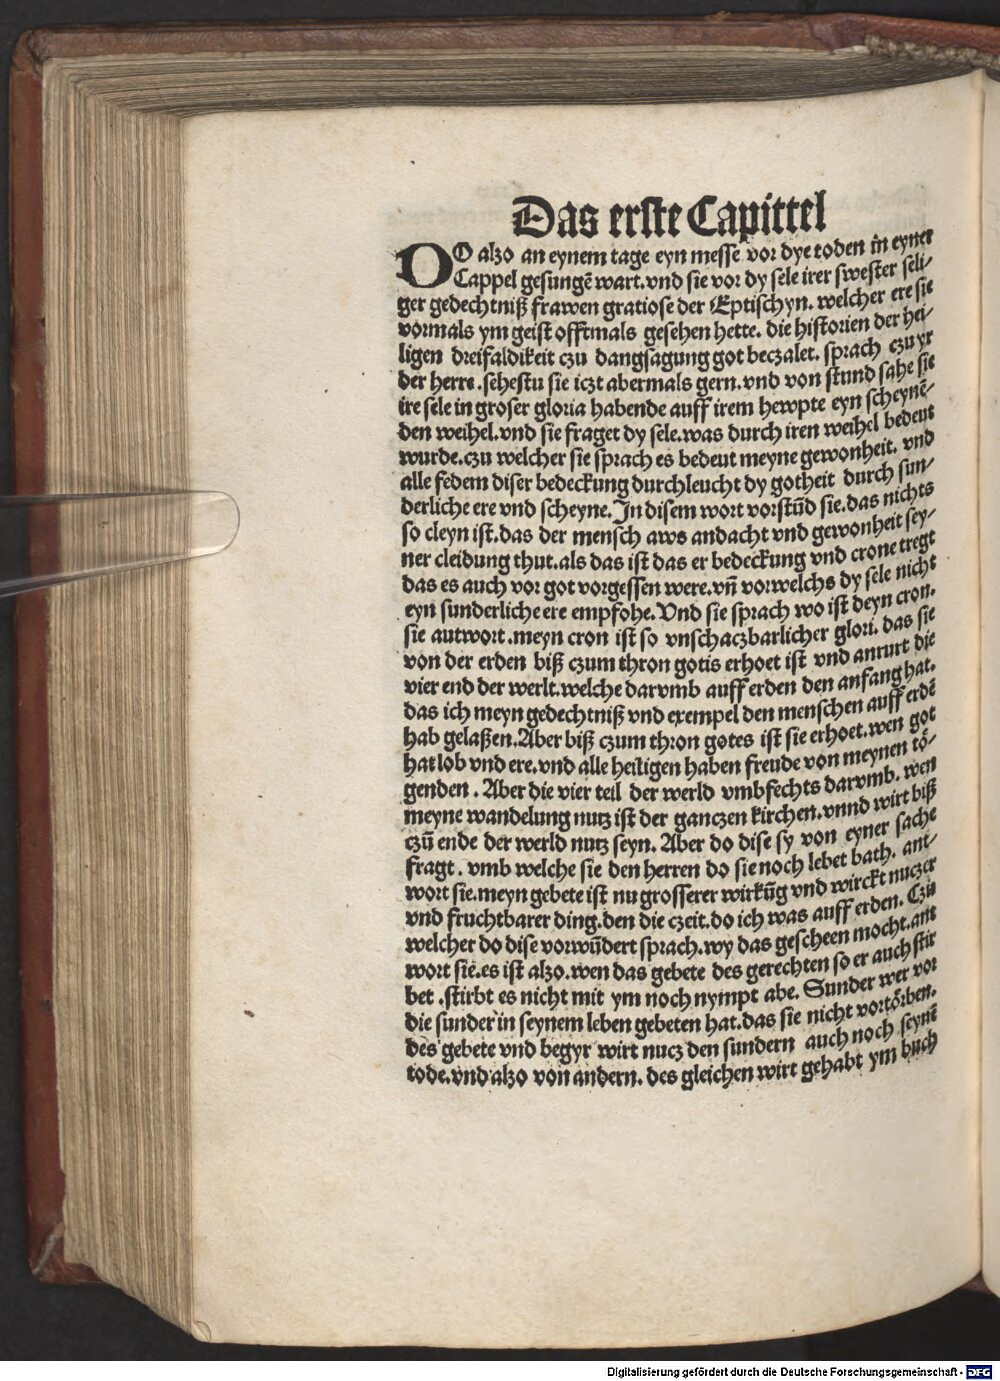 Das erste Capittel
DO alzo an eynem tage eyn messe vor dye toden in eyner
Cappel gesungē wart.vnd sie vor dy sele irer swester seli-
ger gedechtniß frawen gratiose der Eptischyn. welcher ere sie
vormals ym geist offtmals gesehen hette. die historien der hei-
ligen dreifaldikeit czu dangsagung got beczalet. sprach czu yr
der herre .sehestu sie iczt abermals gern.vnd von stund sahe sie
ire sele in groser gloria habende auff irem hewpte eyn scheynē-
den weihel.vnd sie fraget dy sele.was durch iren weihel bedeut
wurde.czu welcher sie sprach es bedeut meyne gewonheit. vnd
alle fedem diser bedeckung durchleucht dy gotheit durch sun-
derliche ere vnd scheyne. In disem wort vorstūd sie.das nichts
so cleyn ist.das der mensch aws andacht vnd gewonheit sey-
ner cleidung thut.als das ist das er bedeckung vnd crone tregt
das es auch vor got vorgessen were.vñ vorwelchs dy sele nicht
eyn sunderliche ere empfohe. Vnd sie sprach wo ist deyn cron.
sie autwort .meyn cron ist so vnschaczbarlicher glori. das sie
von der erden biß czum thron gotis erhoet ist vnd anrurt die
vier end der werlt.welche darvmb auff erden den anfang hat.
das ich meyn gedechtniß vnd exempel den menschen auff erdē
hab gelaßen.Aber biß czum thron gotes ist sie erhoet.wen got
hat lob vnd ere.vnd alle heiligen haben freude von meynen tö-
genden . Aber die vier teil der werld vmbfechts darvmb. wen
meyne wandelung nutz ist der ganczen kirchen.vnnd wirt biß
czū ende der werld nutz seyn. Aber do dise sy von eyner sache
fragt . vmb welche sie den herren do sie noch lebet bath. ant-
wort sie.meyn gebete ist nu grosserer wirkūg vnd wirckt nuczer
vnd fruchtbarer ding.den die czeit.do ich was auff erden. Czu
welcher do dise vorwūdert sprach.wy das gescheen mocht.ant
wort sie.es ist alzo.wen das gebete des gerechten so er auch stir
bet .stirbt es nicht mit ym noch nympt abe. Sunder wer vor
die sunder in seynem leben gebeten hat.das sie nicht vortörben.
des gebete vnd begyr wirt nucz den sundern auch noch seynē
tode.vnd alzo von andern. des gleichen wirt gehabt ym buch
Digitalisierung gefördert durch die Deutsche Forschungsgemeinschaft - DFG